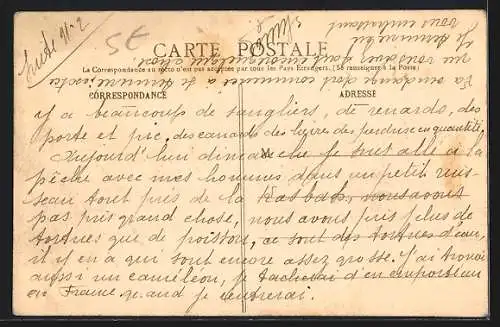 Suite n°2
57
CARTE POSTALE
La Correspondance au recto n'est pas acceptée par tous les Pays Étrangers. (Se renseigner à la Poste)
CORRESPONDANCE
ADRESSE
y a beaucoup de sangliers, de renards, des
porte et pic, des canards des lièvres des perdrix en quantité,
Aujourd'hui dimanche je suis allé à la
pêche avec mes hommes dans un petit ruis-
seau tout près de la Kasbah, nous avons
pas pris grand chose, nous avons pris plus de
tortues que de poisson, ce sont des tortues d'eau,
il y en a qui sont encore assez grosse. J'ai trouvé
aussi un caméléon, je tacherai d'en emporter un
en France quand je rentrerai.
La vendange doit commencer à se
au vous doit encore quelque chose.
Je termine en
vous embrassant